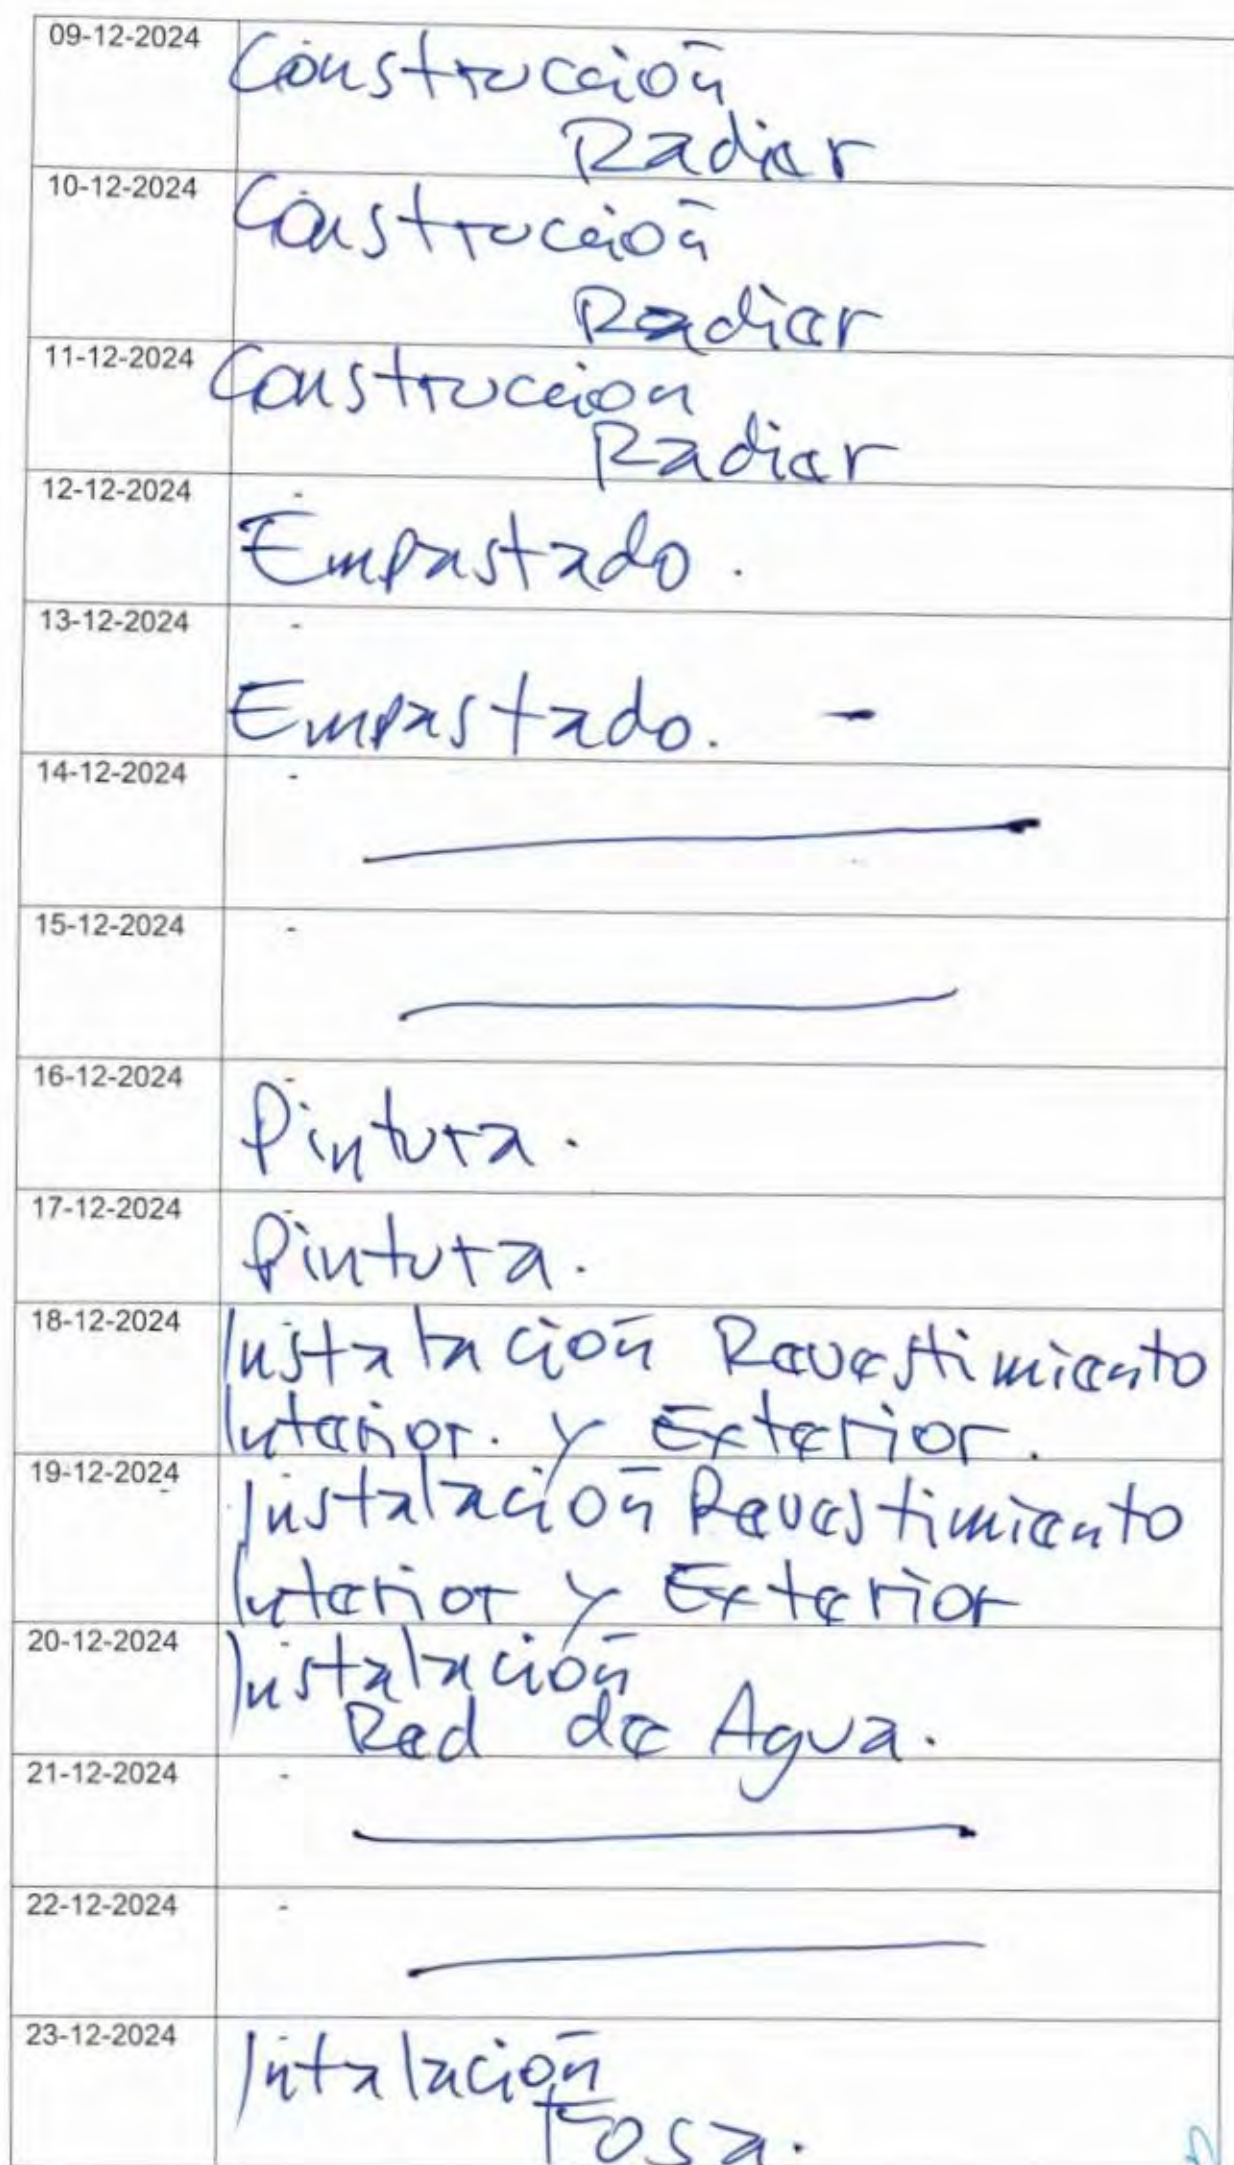 09-12-2024
Construcción
Radier
10-12-2024
Construcción
Radier
11-12-2024
Construcción
Radier
12-12-2024 -
Empastado.
13-12-2024 -
Empastado. -
14-12-2024 -
15-12-2024 -
16-12-2024 -
Pintura.
17-12-2024 -
Pintura.
18-12-2024
Instalación Revestimiento
Interior. y Exterior.
19-12-2024
Instalación Revestimiento
Interior y Exterior
20-12-2024
Instalación
Red de Agua.
21-12-2024 -
22-12-2024 -
23-12-2024 -
Intalación
Fosa.